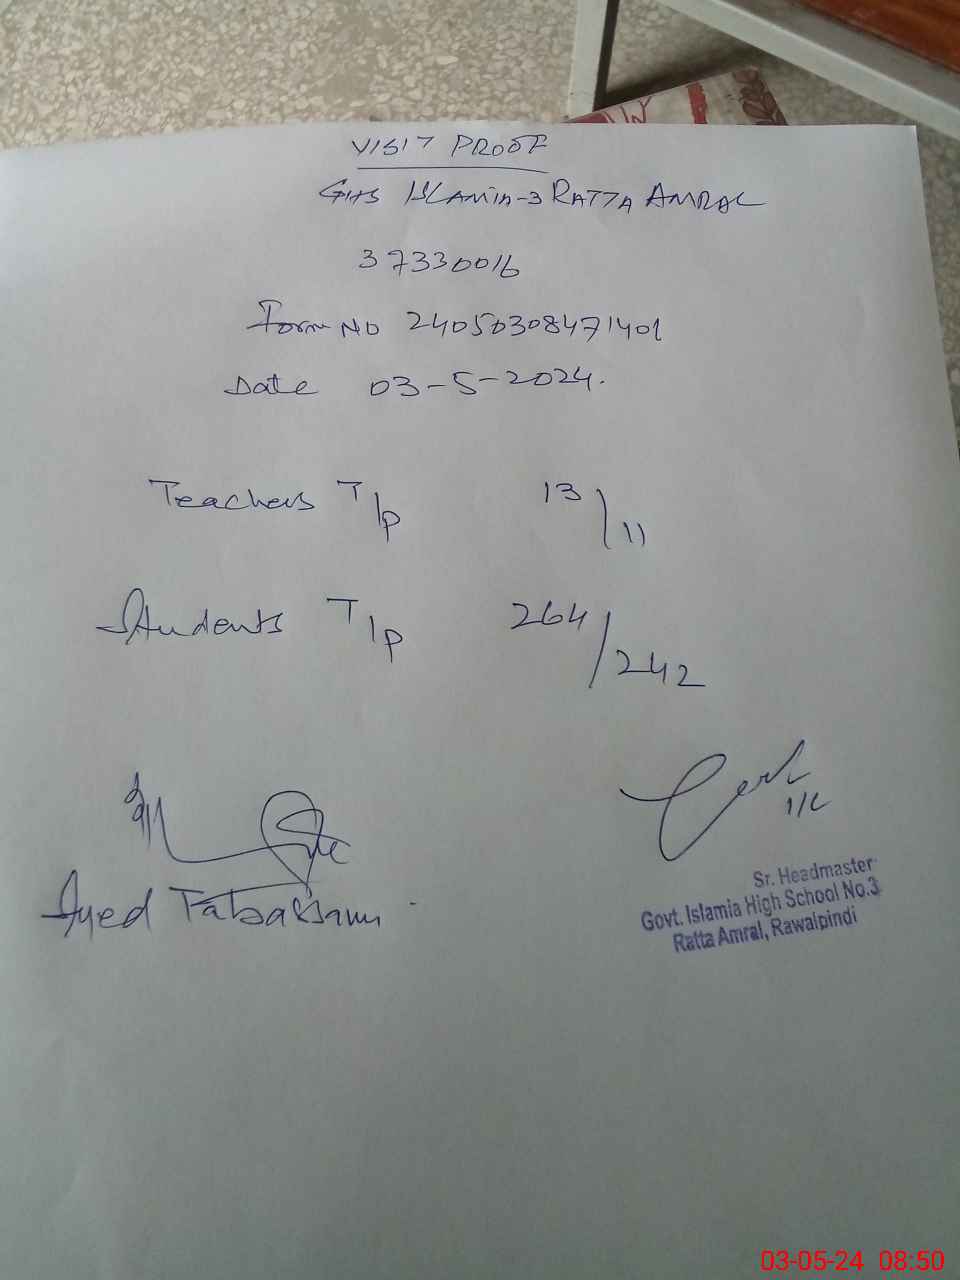 VISIT PROOF
GHS ISLAMIA-3 RATTA AMRAL
37330016
Form NO 24050308471401
Date 03-5-2024.
Teachers T/P 13/11
Students T/P 264/242
I/C
Syed
Sr. Headmaster
Govt. Islamia High School No.3
Ratta Amral, Rawalpindi
03-05-24 08:50